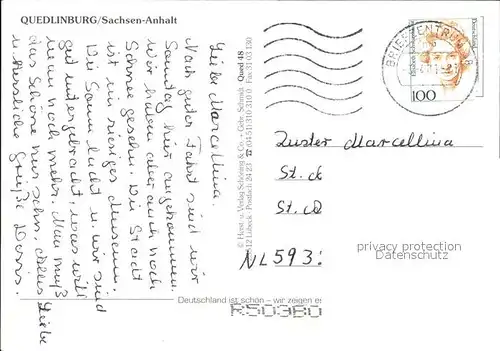 QUEDLINBURG/Sachsen-Anhalt
Liebe Marcellina.
Nach guter Fahrt sind wir
Sonntag hier angekommen.
Wir haben aber auch noch
Schnee gesehn. Die Stadt
ist ein riesiges Museum.
Die Sonne lacht u. wir sind
gut untergebracht, was will
man noch mehr. Man muß
das Schöne nur sehn. Alles Liebe
u. herzliche Grüße Doris.
© Horst u. Verlag Schöning & Co. + Gebr. Schmidt Qued 48
12 Lübeck Postfach 24 23 ☎ 04 51/3 10 31-0 Fax 31 03 130
BRIEFZENTRUM 38
100
Zuster Marcellina
St.
St.
NL 593
privacy protection
Dansenmuseum.de
Deutschland ist schön – wir zeigen es